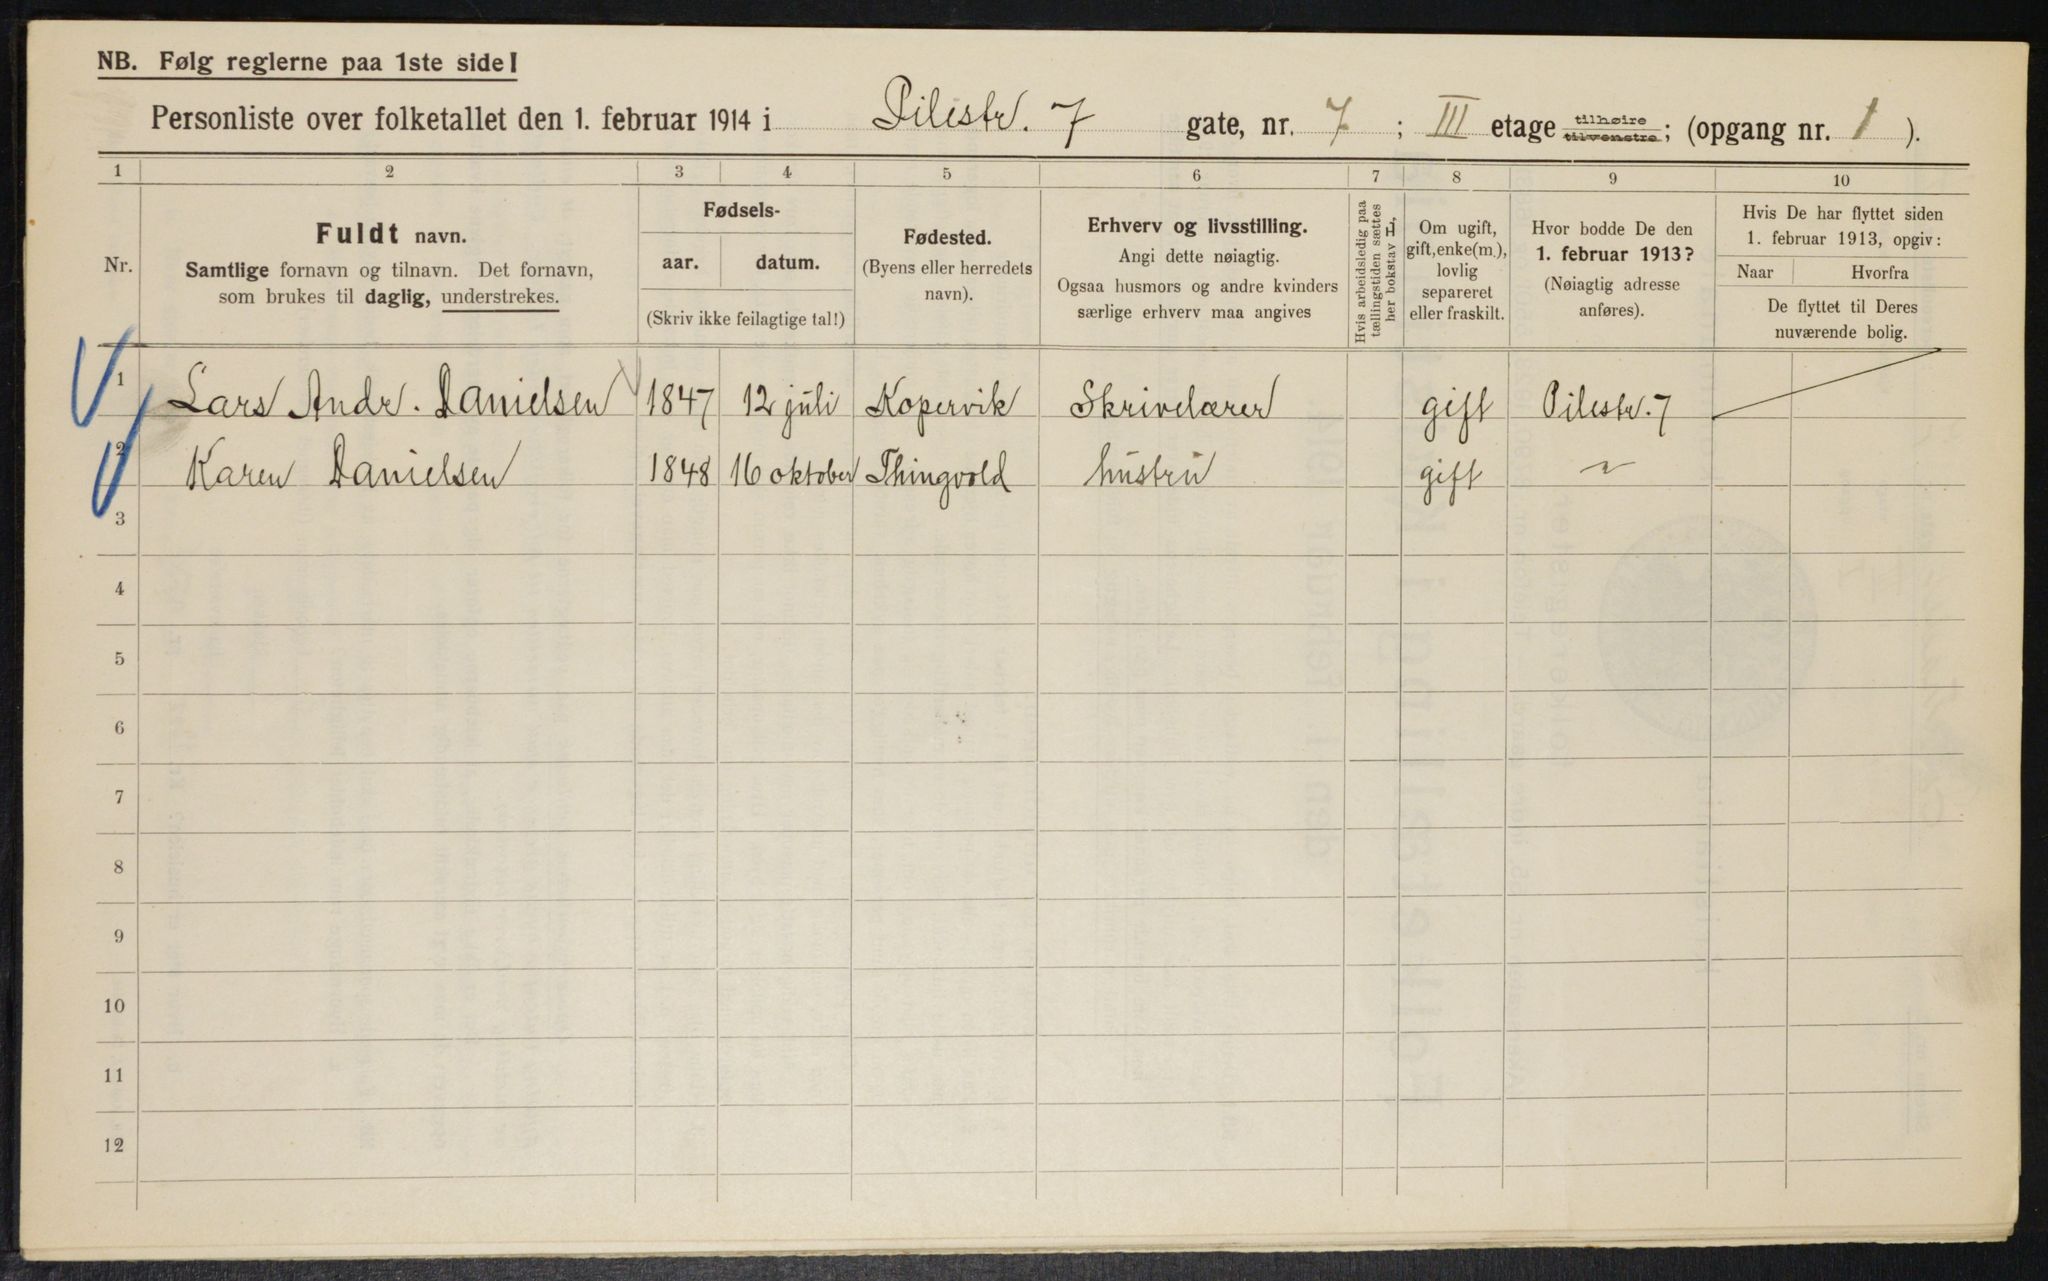 NB. Følg reglerne paa 1ste side!
Personliste over folketallet den 1. februar 1914 i Pilestr. 7 gate, nr. 7; III etage tilhøire tilvenstre; (opgang nr. 1).
1 2 3 4 5 6 7 8 9 10
Nr.
Fuldt navn.
Samtlige fornavn og tilnavn. Det fornavn,
som brukes til daglig, understrekes.
Fødsels-
aar. datum.
(Skriv ikke feilagtige tal!)
Fødested.
(Byens eller herredets
navn).
Erhverv og livsstilling.
Angi dette nøiagtig.
Ogsaa husmors og andre kvinders
særlige erhverv maa angives
Hvis arbeidsledig paa
tællingstiden sættes
her bokstav L,
Om ugift,
gift, enke(m.),
lovlig
separeret
eller fraskilt.
Hvor bodde De den
1. februar 1913?
(Nøiagtig adresse
anføres).
Hvis De har flyttet siden
1. februar 1913, opgiv:
Naar Hvorfra
De flyttet til Deres
nuværende bolig.
1 Lars Andr. Danielsen 1847 12 juli Kopervik Skrivelærer gift Pilestr. 7
2 Karen Danielsen 1848 16 oktober Thingvold hustru gift
3
4
5
6
7
8
9
10
11
12